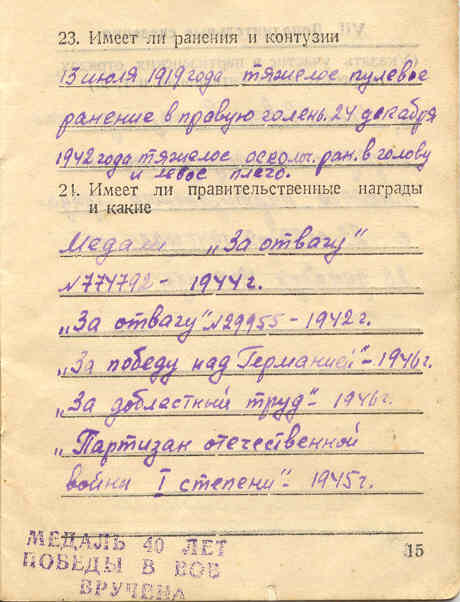 23. Имеет ли ранения и контузии
13 июля 1919 года тяжелое пулевое
ранение в правую голень. 24 декабря
1942 года тяжелое осколоч. ран. в голову
и левое плечо.
24. Имеет ли правительственные награды
и какие
Медали „За отвагу"
№774792 - 1944 г.
„За отвагу" №29955 - 1942 г.
„За победу над Германией" - 1946 г.
„За доблестный труд" - 1946 г.
„Партизан отечественной
войны I степени" - 1945 г.
МЕДАЛЬ 40 ЛЕТ
ПОБЕДЫ В ВОВ
ВРУЧЕНА
15